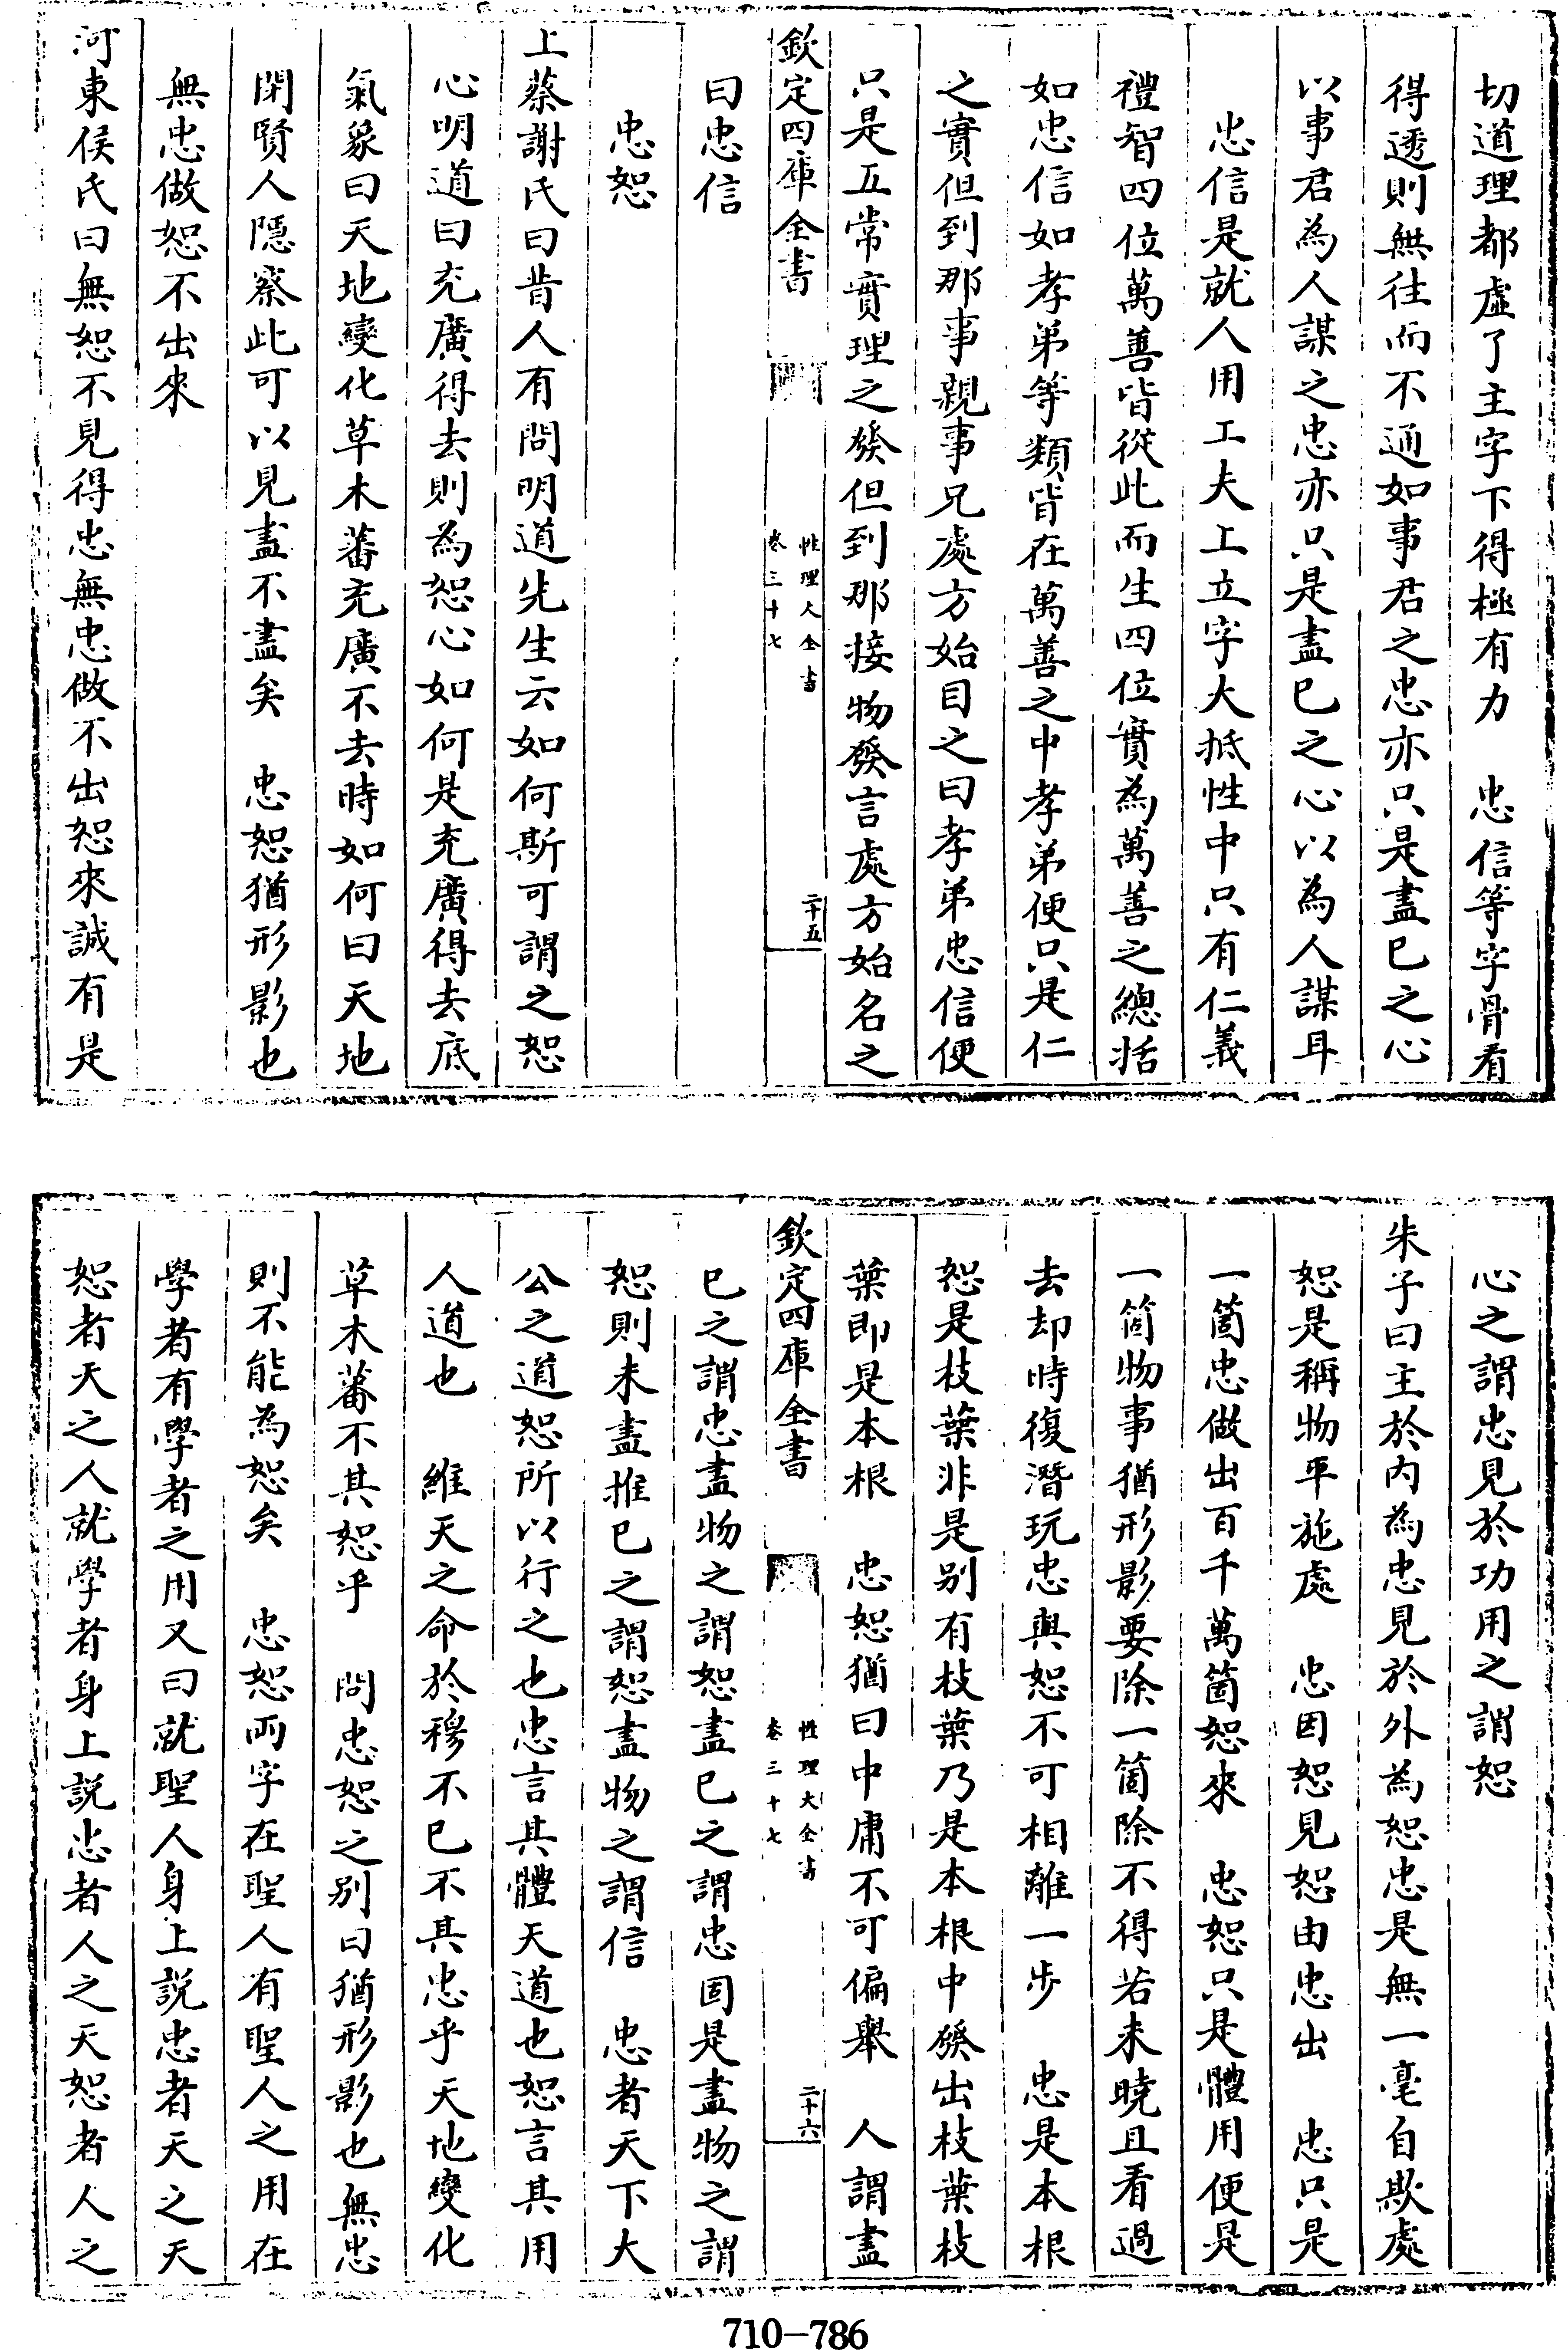 切道理都虛了主字下得極有力　忠信等字骨看
得透則無往而不通如事君之忠亦只是盡已之心
以事君為人謀之忠亦只是盡已之心以為人謀耳
忠信是就人用工夫上立字大抵性中只有仁義
禮智四位萬善皆從此而生四位實為萬善之總括
如忠信如孝弟等類皆在萬善之中孝弟便只是仁
之實但到那事親事兄處方始目之曰孝弟忠信便
只是五常實理之發但到那接物發言處方始名之
欽定四庫全書
性理大全書
卷三十七
二十五
曰忠信
忠恕
上蔡謝氏曰昔人有問明道先生云如何斯可謂之恕
心明道曰充廣得去則為恕心如何是充廣得去底
氣象曰天地變化草木蕃充廣不去時如何曰天地
閉賢人隱察此可以見盡不盡矣　忠恕猶形影也
無忠做恕不出來
河東侯氏曰無恕不見得忠無忠做不出恕來誠有是
心之謂忠見於功用之謂恕
朱子曰主於內為忠見於外為恕忠是無一毫自欺處
恕是稱物平施處　忠因恕見恕由忠出　忠只是
一箇忠做出百千萬箇恕來　忠恕只是體用便是
一箇物事猶形影要除一箇除不得若未曉且看過
去却時復潛玩忠與恕不可相離一步　忠是本根
恕是枝葉非是别有枝葉乃是本根中發出枝葉枝
葉即是本根　忠恕猶曰中庸不可偏舉　人謂盡
欽定四庫全書
性理大全書
卷三十七
二十六
已之謂忠盡物之謂恕盡已之謂忠固是盡物之謂
恕則未盡推已之謂恕盡物之謂信　忠者天下大
公之道恕所以行之也忠言其體天道也恕言其用
人道也　維天之命於穆不已不其忠乎天地變化
草木蕃不其恕乎　問忠恕之别曰猶形影也無忠
則不能為恕矣　忠恕兩字在聖人有聖人之用在
學者有學者之用又曰就聖人身上説忠者天之天
恕者天之人就學者身上説忠者人之天恕者人之
710-786